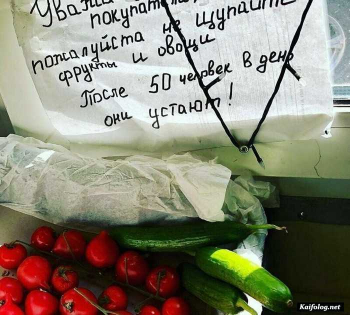 покупатели
пожалуйста не щупайте
фрукты и овощи
После 50 человек в день
они устают!
Kaifolog.net